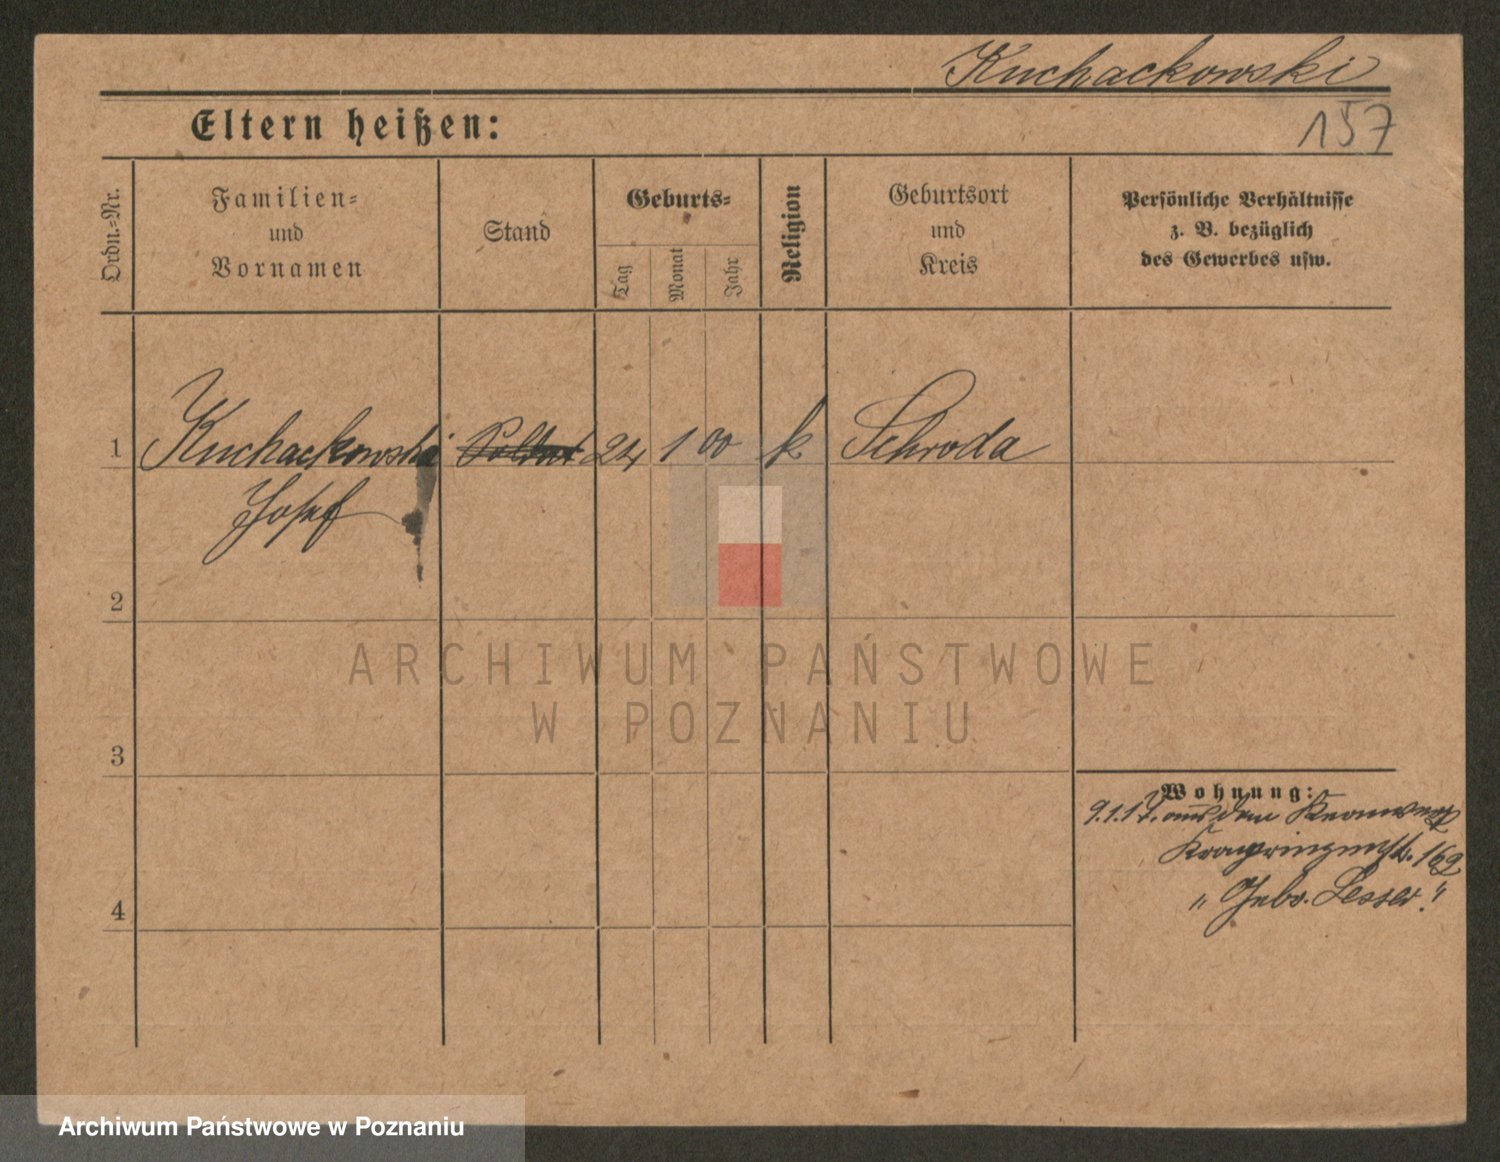 Kuchackowski
157
Eltern heißen:
Ordn.-Nr.
Familien-
und
Vornamen
Stand
Geburts-
Tag
Monat
Jahr
Religion
Geburtsort
und
Kreis
Persönliche Verhältnisse
z. B. bezüglich
des Gewerbes usw.
1 Kuchackowski Soldat 24 1 00 k Schroda
Josef
2
ARCHIWUM PAŃSTWOWE
W POZNANIU
3
Wohnung:
9.1.17. aus dem
Kronprinzenstr. 169
" Gebr. Lesser."
4
Archiwum Państwowe w Poznaniu